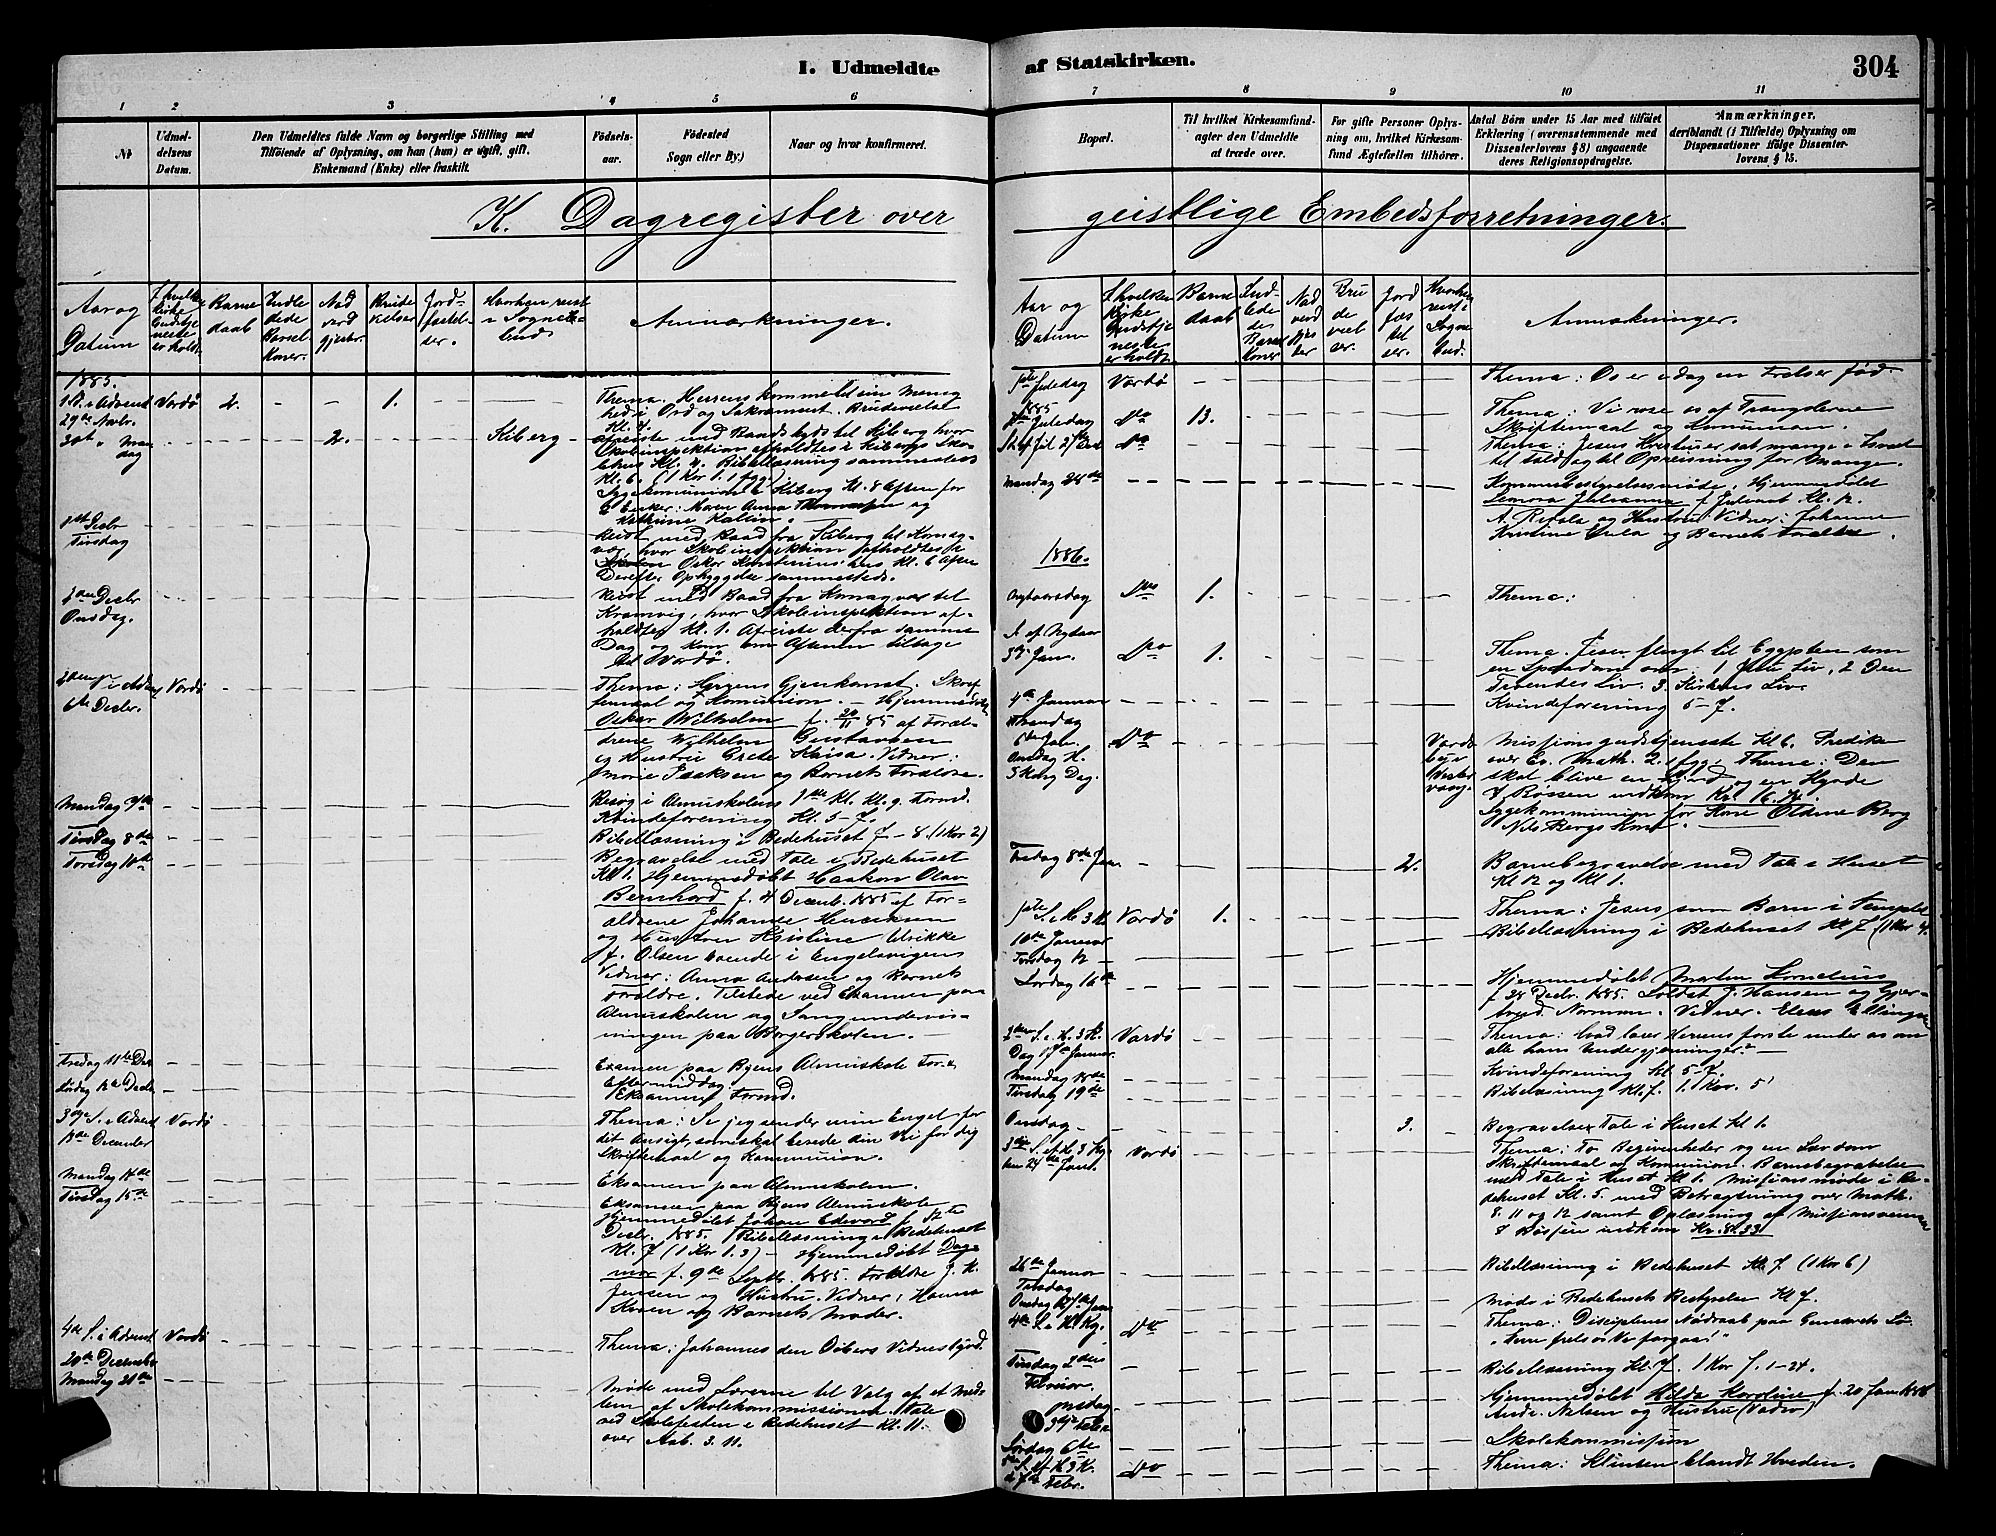 I. Udmeldte
af Statskirken.
304
1
2
3
4
5
6
7
8
9
10
11
№
Udmel-
delsens
Datum.
Den Udmeldtes fulde Navn og borgerlige Stilling med
Tilføiende af Oplysning, om han (hun) er ugift, gift,
Enkemand (Enke) eller fraskilt.
Fødsels-
aar.
Fødested
Sogn eller By.)
Naar og hvor konfirmeret.
Bopæl.
Til hvilket Kirkesamfund-
agter den Udmeldte
at træde over.
For gifte Personer Oplys-
ning om, hvilket Kirkesam-
fund Ægtefællen tilhører.
Antal Børn under 15 Aar med tilføiet
Erklæring (overensstemmende med
Dissenterlovens § 8) angaaende
deres Religionsopdragelse.
Anmærkninger,
deriblandt (i Tilfælde) Oplysning om
Dispensationer ifølge Dissenter-
lovens § 15.
K. Dagregister over
geistlige Embedsforretninger.
Aar og
Datum
I hvilken
Kirke
Gudstje
neste
er holdt
Barne
daab
Indle
dede
Barsel
koner
Nad
verd
gjester
Brude
vielser
Jord-
fæstel-
ser.
Hvorhen reist
i Sogne-
bud
Anmærkninger.
1885.
1 S. i Advent Vardø 2. - - 1.
29de Novbr.
Thema. Herrens komme til sin Menig
hed i Ord og Sakrament. Brudevielse
Kl. 4.
30te Man
dag
2.
Kiberg
afreiste med Baadskyds til Kiberg hvor
Skoleinspektion afholdtes i Kibergs Sko-
lehus Kl. 4. Bibellæsning sammesteds
Kl. 6. (1 Kor 1. 1 fgg.)
Sygekommunion i Kiberg Kl. 8 Aften for
2 Enker: Maren Anna Thomasen og
1ste Decbr
Tirsdag
Reist med Baad fra Kiberg til Komag-
vær, hvor Skoleinspektion afholdtes
hus Kl. 6 Aften
Derefter Opbyggelse sammesteds.
2den Decbr
Onsdag.
Reist med Baad fra Komagvær til
Kramvig, hvor Skoleinspektion af-
holdtes Kl. 1. Afreiste derfra samme
Dag og kom om Aftenen tilbage
til Vardø.
2den S. i Adv. Vardø
6te Decbr.
Thema: Herrens Gjenkomst. Skrif
temaal og Komunion. Hjemmedøbt
Oskar Wilhelm f. 20/11 85 af Foræl-
drene Wilhelm Gustavsen
og Hustru Grete Kaisa. Vidner:
Marie Isaksen og Barnets Forældre.
Mandag 7de
Besøg i Almuskolens 1ste Kl. Kl. 9. Formd.
Kvindeforening Kl. 5-7.
Tirsdag 8de
Bibellæsning i Bedehuset 7-8. (1 Kor 2)
Torsdag 10de
Begravelse med Tale i Bedehuset
Kl 1. Hjemmedøbt Haakon Olav
Bernhard f. 4 Decemb. 1885 af For-
ældrene Johannes Henriksen
og Hustru Kristine Ulrikke
f. Olsen boende i Engelsvigens
Vidner: Anna Andersen og Barnets
Forældre. Tilstede ved Examen paa
Almuskolen og Sangundervis-
ningen paa Borgerskolen.
Fredag 11te Dec
Examen paa Byens Almuskole For- &
Eftermiddag.
Lørdag 12te Decbr
Eksamen Formd.
3die S. i Advent Vardø
13de December
Thema: Se jeg sender min Engel for
dit Ansigt, som skal berede din Vei for dig
Skriftemaal og Kommunion.
Mandag 14de
Eksamen paa Almuskolen.
Tirsdag 15de
Eksamen paa Byens Almuskole
Hjemmedøbt Johan Edvard f.
Decbr. 1885. Bibellæsning i Bedehuset
Kl. 7 (1 Kor 1. 3) - Hjemmedøbt Dag-
mar f. 9de Septbr. 1885. Forældre J. K.
Jensen og Hustru. Vidner: Hanna
og Barnets Moder.
4de S. i Advent Vardø
20de December
Thema: Johannes den Døbers Vidnesbyrd.
Mandag 21de
Møde med Lærerne til Valg af et Med-
lem af Skolekommissionen. Tale
ved Skolefesten i Bedehuset Kl. 11.
over Aab. 3. 11.
Aar og
Datum
I hvilken
Kirke
Gudstje
neste
er holdt
Barne
daab
Ind-
lede
de
Barsel
koner
Nad
verd
gjes
ter
Bru
de
viel
ser.
Jord
fæs
tel
ser.
Hvorhen
reist i
Sogne
bud.
Anmærkninger.
1ste Juledag Vardø
Thema: Os er i dag en Frelser fød
1885
2den Juledag Do 13.
Thema: Vi rose os af Trængslerne
Skriftemaal og Komunion.
S. ef. Jul 27 Dec Do
Thema: Jesus Kristus er sat mange i Israel
til Fald og til Opreisning for Mange.
Mandag 28de
Kommunebestyrelsesmøde. Hjemmedøbt
Lenora Julianna f. Juleaft Kl. 12.
og Hustru. Vidner: Johanne
Kristine og Barnets Forældre.
1886.
Nytaarsdag Do 1.
Thema:
S. ef Nytaar
3die Jan. Do 1.
Thema. Jesu Flugt til Egypten som
en Spaadom om: 1 Jesu Liv, 2 Den
Troendes Liv. 3. Kirkens Liv.
4de Januar
Mandag
Kvindeforening 5-7.
6te Jan.
Onsdag H.
3 Kong Dag.
Do
Vardø
by
Vester
vaag.
Missionsgudstjeneste Kl. 6. Prediken
over Ev. Math. 2. 1 fgg. Thema: Der
skal blive en Hjord og en Hyrde
I Bøssen indkom Kr. 16.
Sygekommunion for Kone Oldine Berg
Nils Bergs Kone.
Fredag 8de Jan 2.
Barnebegravelse med Tale i Huset
Kl 12 og Kl 1.
1ste S. e. H 3 K Vardø 1.
10de Januar
Thema: Jesus som Barn i Templet
Tirsdag 12
Bibellæsning i Bedehuset Kl 7 (1 Kor 4.
Lørdag 16de
Hjemmedøbt Martin Kornelius
f 28 Decbr. 1885. Soldat J. Hansen og Gjer-
trud Norman. Vidner. Ellingsen
2den S. e. H. 3 K. Vardø
Dag 17de Januar
Thema: hvad lærer Herrens første under os om
alle hans Undergjerninger?
Mandag 18de
Kvindeforening Kl. 5-7.
Tirsdag 19de
Bibellæsning Kl. 7. 1. Kor. 5
Onsdag 3.
Begravelse Tale i Huset Kl 1.
3die S. ef H. 3 Kg. Vardø
den 24de Jan.
Thema: To Begivenheder og en Lærdom
Skriftemaal og Kommunion. Barnebegravelse
med Tale i Huset Kl 1. Missionsmøde i Be-
dehuset Kl. 5 med Betragtning over Math.
8. 11 og 12 samt Oplæsning af Missionsvennen
I Bøssen indkom Kr. 8.33.
26de Januar
Tirsdag
Bibellæsning i Bedehuset Kl. 7 (1 Kor 6)
Onsdag 27de Jan
Møde i Bedehusets Bestyrelse Kl 7.
4de S. e H. 3 Kg. Do
Thema: Disciplenes Nødraab paa Genesarets Sø
„herre frels os vi forgaar!"
Tirsdag 2den
Februar
Bibellæsning Kl. 7. 1 Kor 7. 1-24.
Onsdag
3die Febr.
Hjemmedøbt Hilda Karoline f. 20 Jan 1886
Andr. Nilsen og Hustru (Vadsø)
Lørdag 6te
Skolekommission
5te S. ef H. 3 K. Do
d. 7de Febr.
Thema: Klinten blandt Hveden.